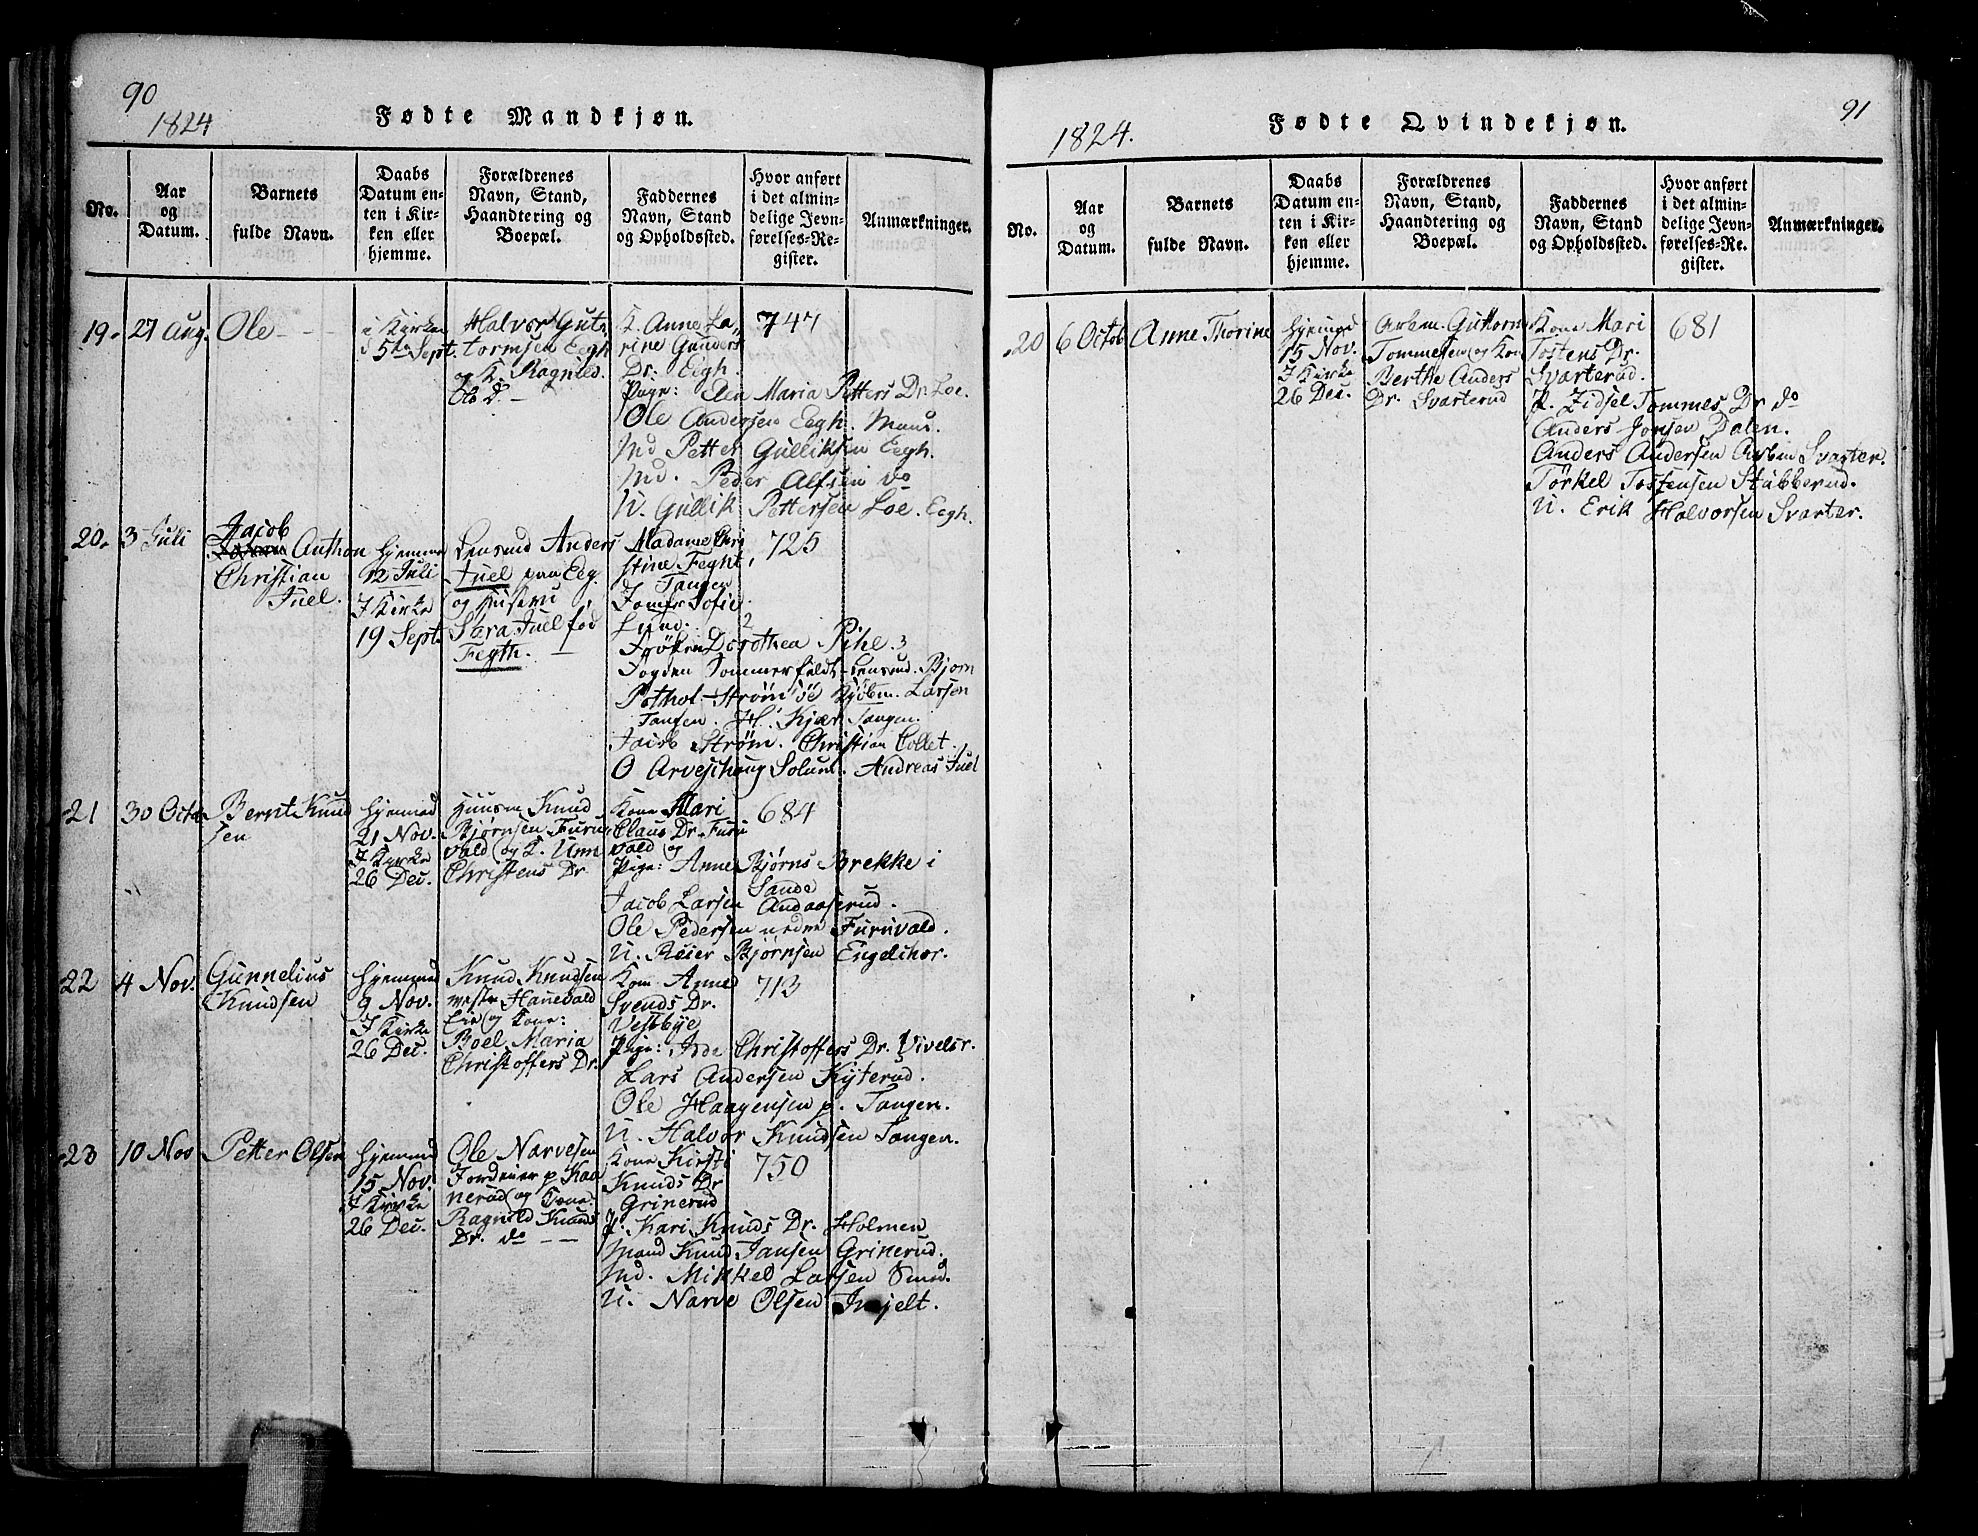 90
1824
Fødte Mandkjøn.
No.
Aar og Datum.
Barnets fulde Navn.
Daabs Datum enten i Kirken eller hjemme.
Forældrenes Navn, Stand, Haandtering og Boepæl.
Faddernes Navn, Stand og Opholdssted.
Hvor anført i det almindelige Jevnførelses-Register.
Anmærkninger.
19.
27 Aug.
Ole
i Kirke
5te Sept.
Halvor Gut
tormsen Eegh
og K. Ragnild
Ols D.
K. Anne La
rine Gunders
Dr. Eegh.
Pige: Elen Maria Petters Dr. Loe.
Ole Andersen Eegh. Mans.
Md Petter Gulliksen Eegh.
Md. Peder Alfsen do
U. Gullik Pettersen Loe. Eegh.
747
20.
3 Juli
Jacob
Anthon
Christian
Juel.
Hjemme
12 Juli
I Kirke
19 Sept.
Lensmd Anders
Juel paa Eeg.
og Hustru
Sara Juel fød
Fegth.
Madame Chri
stine Feght,
Tangen
Jomfr Sofie
Lund. 2
Frøken Dorothea Pihe 3
Fogden Sommerfeldt - Lensmd. Bjorn
Pothof - Strømsøe Kjøbm. Larsen
Tangen. H. Kjær Tangen.
Jacob Strøm. Christian Collet.
O Arveschoug Solum. Andreas Juel
725
21
30 Octb.
Bernt Knud
sen
Hjemmed
21 Nov.
I Kirke
26 Dec.
Huusm Knud
Bjørnsen Furu
vald og K. Unn
Christens Dr.
Kone Mari
Claus Dr. Furu
vald og
Pige: Anne Bjørns Brekke i
Sande
Jacob Larsen Andaaserud.
Ole Pedersen nedre Furuvald.
U. Reier Bjørnsen Engelhor.
684
22
4 Nov.
Gunnelius
Knudsen
Hjemmed
9 Nov.
I Kirke
26 Dec.
Knud Knudsen
vestre Hanevald
Eie og Kone:
Boel Maria
Christoffers Dr.
Kon. Anne
Svends Dr.
Vestbye
Pige: Christoffers Dr. Vivelsr.
Lars Andersen Kyterud.
Ole Haagensen p. Tangen.
U. Halvor Knudsen Tangen.
713
23
10 Nov
Petter Olsen
Hjemmed
15 Nov.
I Kirke
26 Dec.
Ole Narvesen
Jordeier p Kaa
nerud og Kone
Ragnild Knuds
Dr. do
Kone Kirsti
Knuds Dr
Grinerud
P. Kari Knuds Dr. Holmen
Mand Knud Jansen Grinerud.
Md. Mikkel Larsen Smed.
U. Narve Olsen
750
91
1824.
Fødte Qvindekjøn.
No.
Aar og Datum.
Barnets fulde Navn.
Daabs Datum enten i Kirken eller hjemme.
Forældrenes Navn, Stand, Haandtering og Boepæl.
Faddernes Navn, Stand og Opholdssted.
Hvor anført i det almindelige Jevnførelses-Register.
Anmærkninger.
20
6 Octob
Anne Thorine
Hjemmed
15 Nov.
I Kirke
26 Dec.
Arbm. Guttorm
Tommesen og Kon
Berthe Anders
Dr. Svarterud
Kone Mari
Tostens Dr.
Svarterud.
P. Zidsel Tommes Dr do
Anders Jonsen Dalen.
Anders Andersen Arbm Svarter.
Törkel Tostensen Stubberud.
U. Erik Halvorsen Svarter.
681